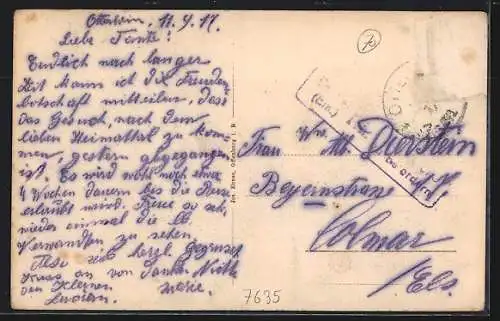 Ottersheim, 11.9.17.
Liebe Tante!
Endlich nach langer
Zeit kann ich die Freuden
botschaft mitteilen, dass
das Gesuch, nach dem
lieben Heimattal zu kom-
men, gestern abgegangen
ist. Es wird wohl noch etwa
4 Wochen dauern bis die Reise
erlaubt wird. Freue so sehr
wieder einmal die lb.
Verwandten zu sehen.
Also viel herzl. gegrüsst
Kuss an von
den Kleinen Marie.
Frau Ww. Alb. Dierstein
Beyernstrasse
Colmar
/Els.
7635